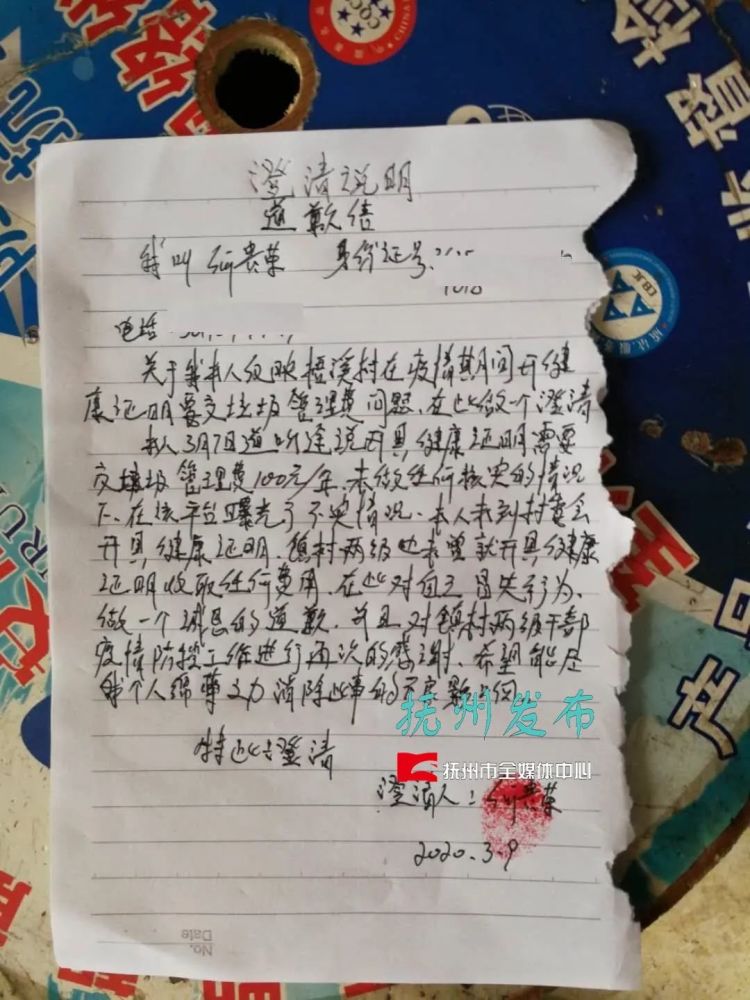 澄清说明
道歉信
我叫何贵荣 身份证号:
1018
电话
关于我本人反映梧溪村在疫情其期间开健
康证明要交垃圾管理费问题,在此做一个澄清
本人3月7日道听途说开具健康证明需要
交垃圾管理费100元/年,未做任何核实的情况
下、在该平台曝光了不实情况、本人未到村委会
开具健康证明、镇村两级也未曾就开具健康
证明收取任何费用、在此对自己冒失行为、
做一个诚恳的道歉、并且对镇村两级干部
疫情防控工作进行再次的感谢、希望能尽
我个人绵薄之力消除此事的不良影响。
特此澄清
澄清人:何贵荣
2020.3.9
抚州发布
抚州市全媒体中心
No.
Date
CQC
产品